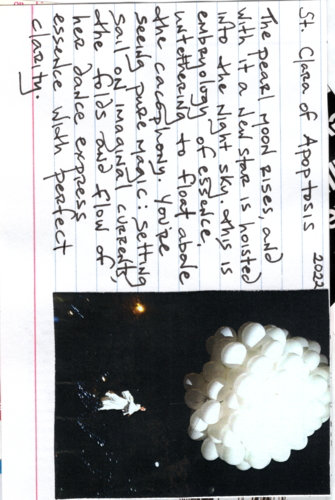 St. Clara of Apoptosis 2022
The pearl moon rises, and
with it a new star is hoisted
into the night sky. This is
embryology of essence,
untethering to float above
the cacophony. You're
seeing pure magic: setting
sail on imaginal currents,
the folds and flow of
her dance express
essence with perfect
clarity.